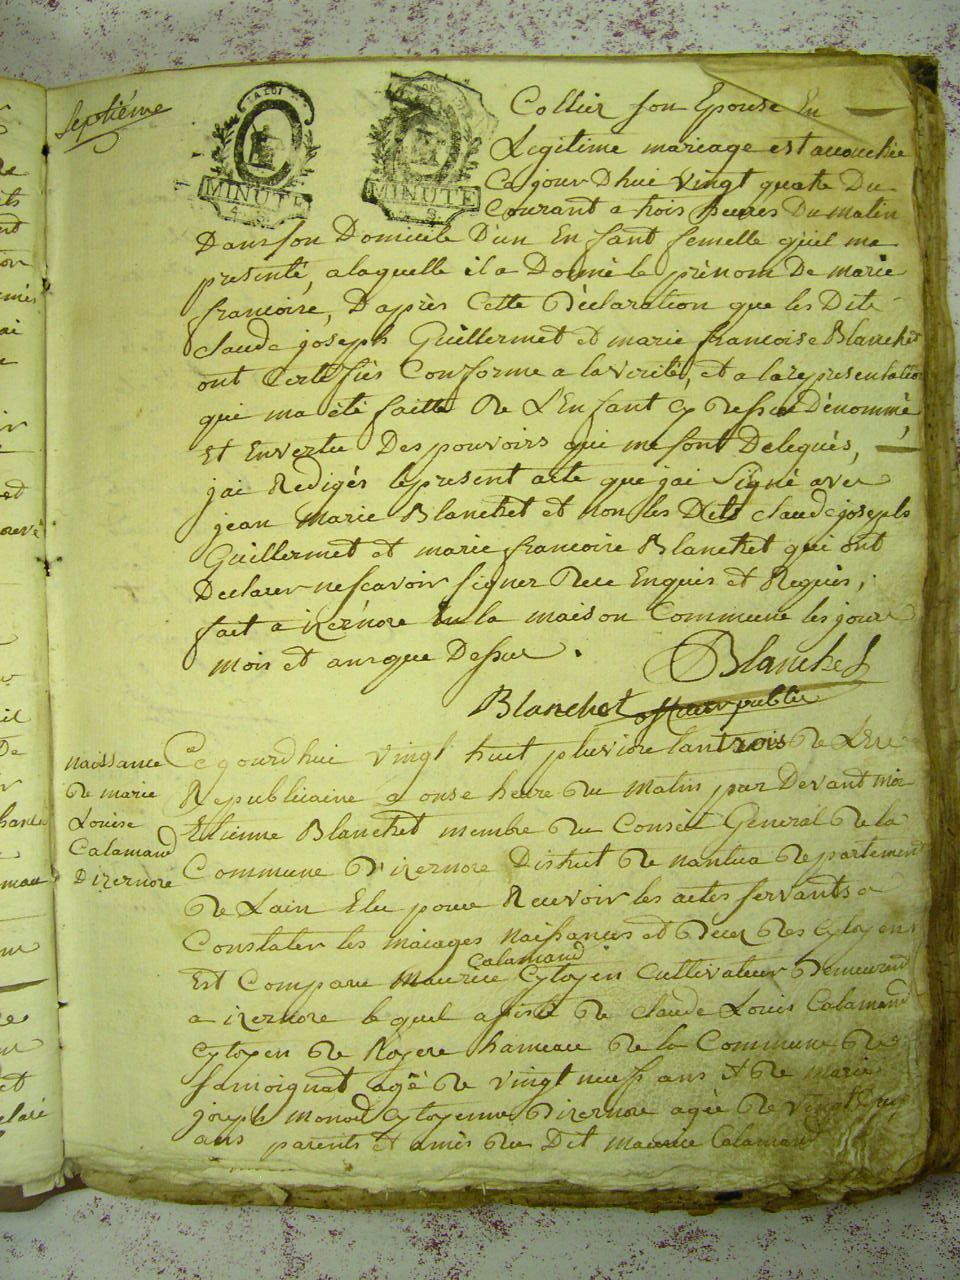 Septiéme
LA LOI
MINUTE
4. S.
MINUTE
S.
Collier son Epouse En
Legitime mariage est accouchée
Cejourdhui vingt quatre Du
Courant a trois heures Du matin
Dans son Domicile D'un Enfant femelle qu'il ma
presenté, alaquelle il a Donné le prénom De marie
francoise, D'après Cette Déclaration que les Dits
claude joseph Guillermet et marie francoise Blanchet
ont Certifiés Conforme a la verité, et a la representation
qui ma été faitte De L'Enfant cy dessus Dénommé,
Et En vertu Des pouvoirs qui me sont Delegués,
jai Redigés le present acte que jai Signé avec
jean Marie Blanchet et non les Dits claude joseph
Guillermet et marie francoise Blanchet qui ont
Declarer ne scavoir signer De ce Enquis et Requis,
fait a izernore En la maison Commune les jour
mois et an que Dessus.
Blanchet
Blanchet officier public
naissance
De marie
Louise
Calamand
Dizernore
Cejourdhui vingt huit pluviose lan trois De L'Ere
Republicaine a onse heure Du Matin par Devant Moi
Etienne Blanchet membre Du Conseil General De la
Commune D'izernore District De nantua Departement
De Lain Elu pour Recevoir les actes servants a
Constater les Mariages Naissances et Deces Des Cytoyens
Calamand
Est Comparu Maurice Cytoyen Cultivateur Demeurand
a izernore lequel assisté De claude Louis Calamand
Cytoyen De Hameau De la Commune De
Samoignat agé De vingt neuf ans Et De Marie
joseph Monod Cytoyenne Dizernore agée De vingt
ans parents Et amis Du Dit Maurice Calamand